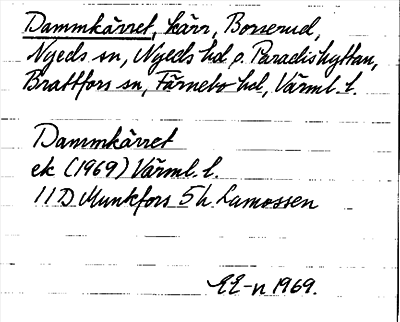 Dammkärret, kärr, Borserud,
Nyeds sn, Nyeds hd o. Paradishyttan,
Brattfors sn, Färnebo hd, Värml. l.
Dammkärret
ek (1969) Värml. l.
11D Munkfors 5h Lamossen
EE-n 1969.